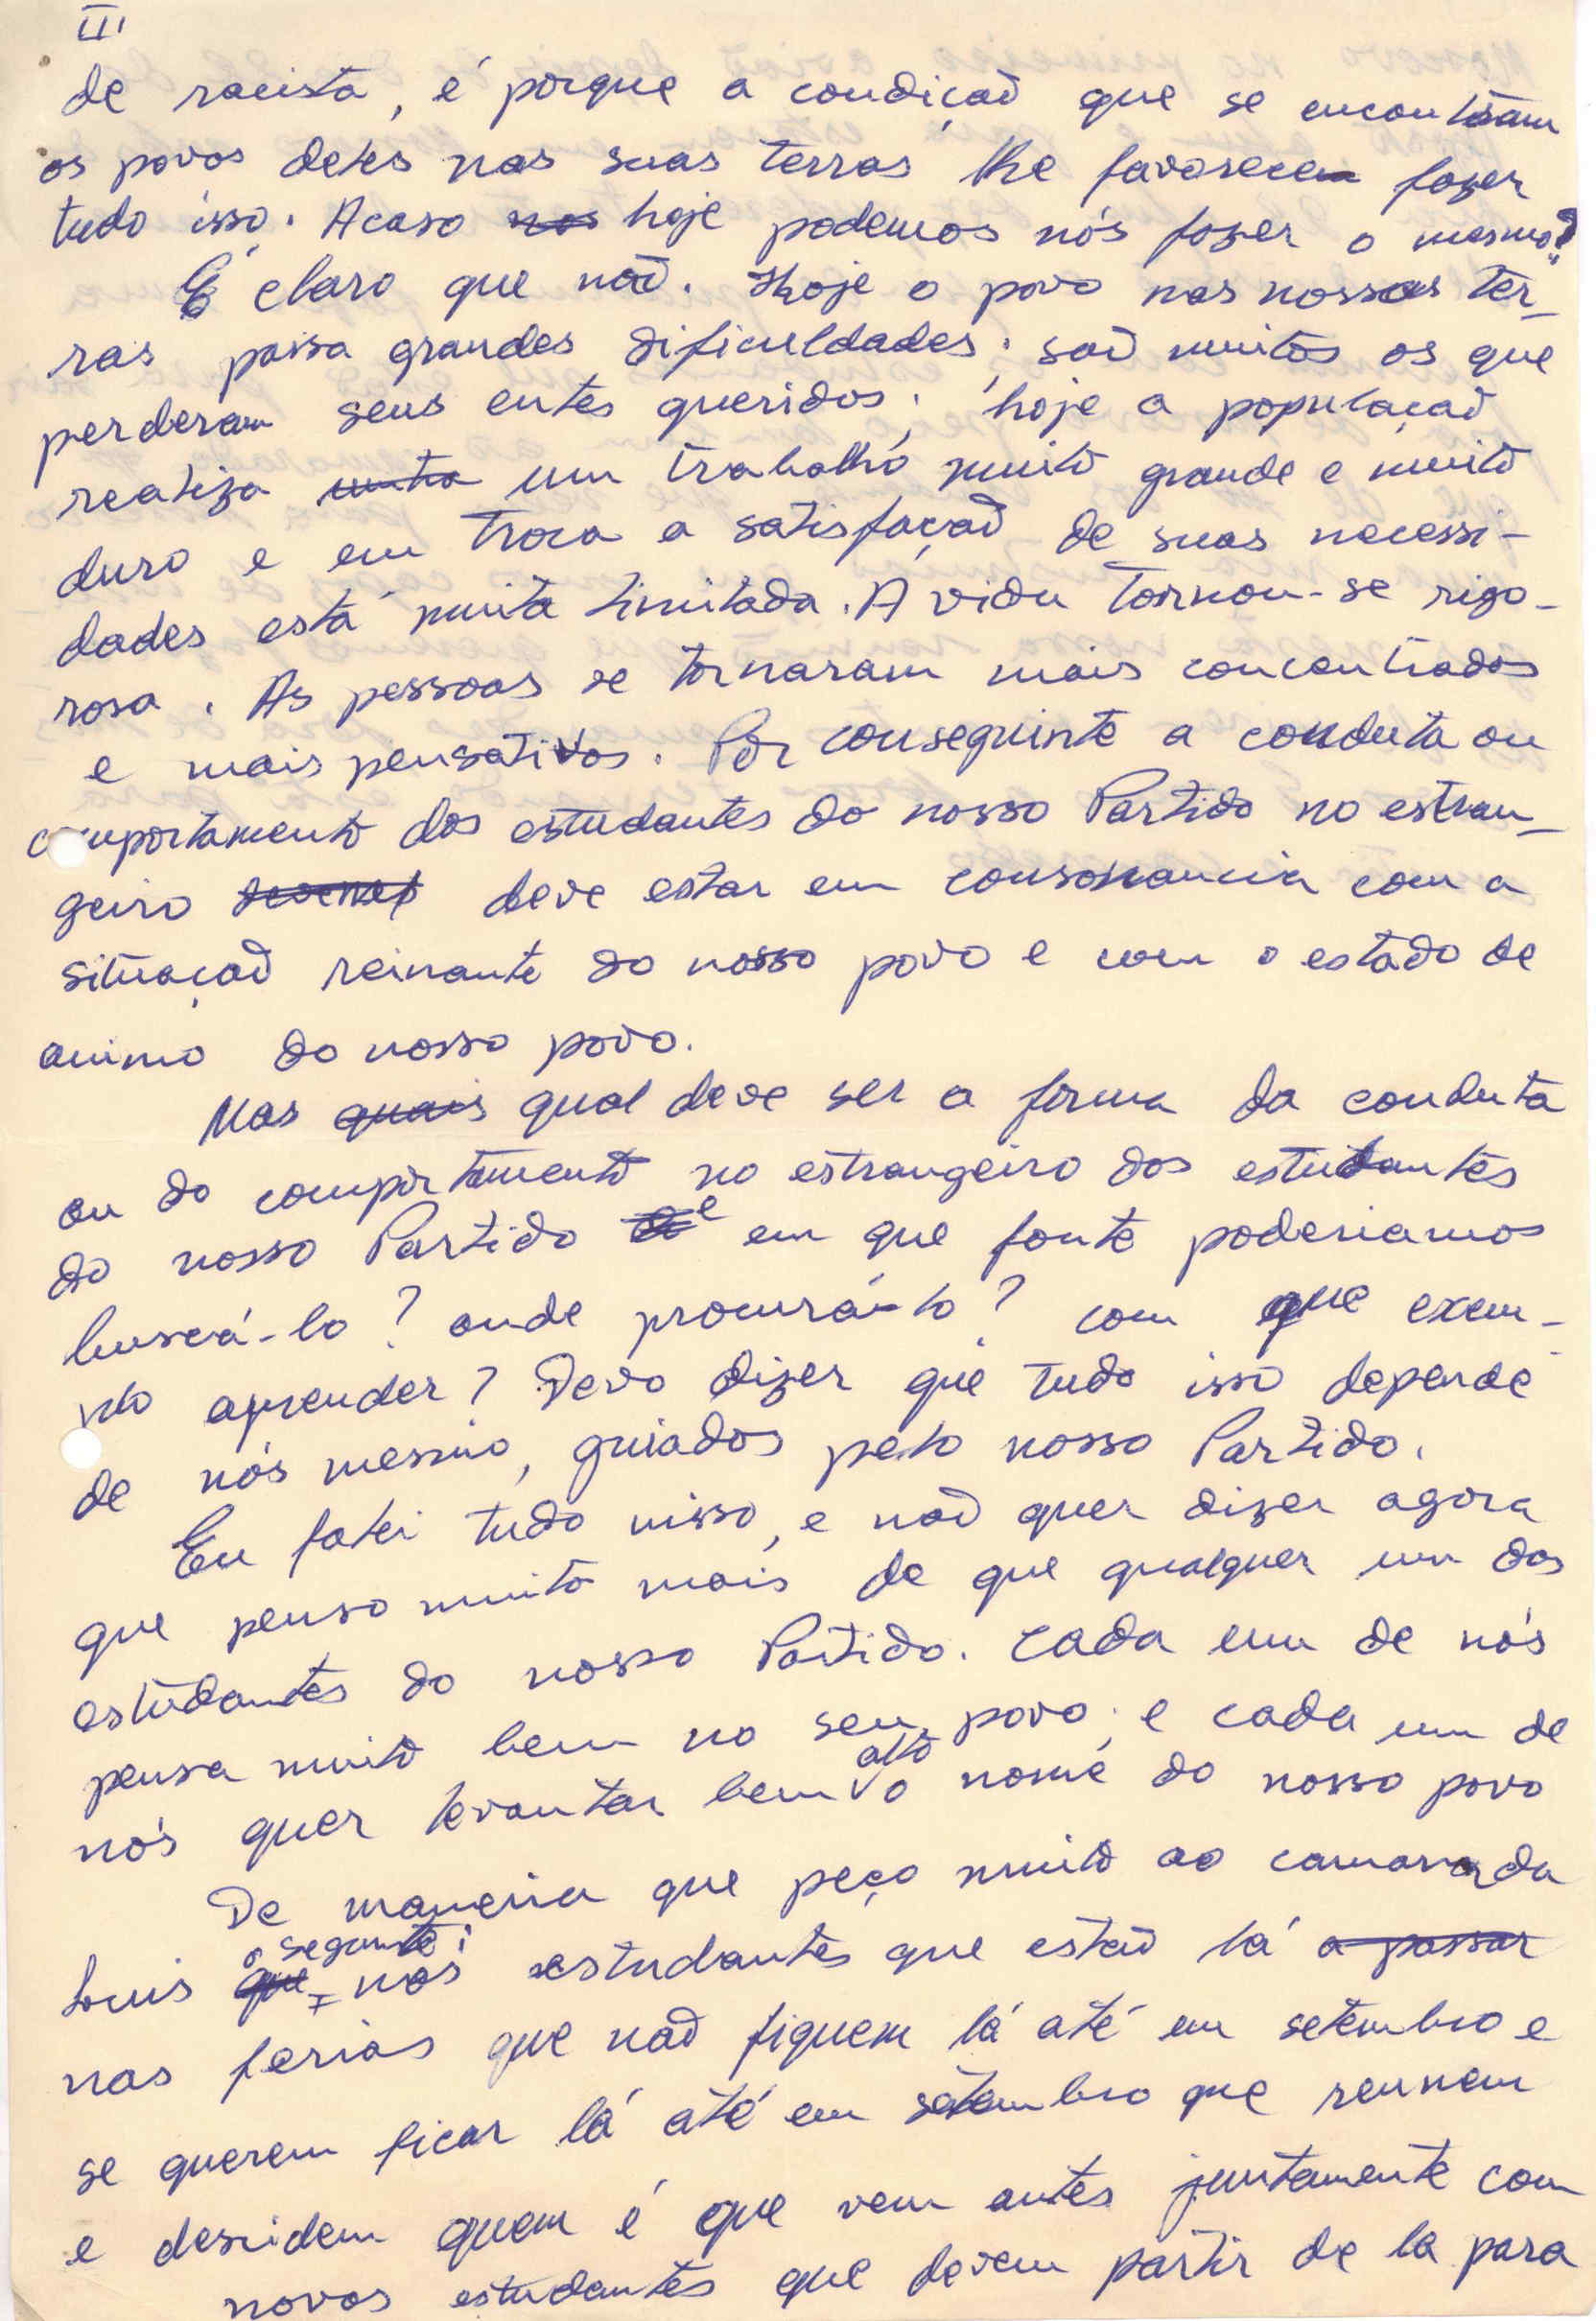 III
de racista, é porque a condiçaõ que se encontram
os povos deles nas suas terras lhe favorecem fazer
tudo isso. Acaso nos hoje podemos nós fazer o mesmo?
É claro que naõ. Hoje o povo nas nossas ter-
ras passa grandes dificuldades, saõ muitos os que
perderam seus entes queridos, hoje a populaçaõ
realiza um trabalho muito grande e muito
duro e em troca a satisfaçaõ de suas necessi-
dades está muita limitada. A vida tornou-se rigo-
rosa. As pessoas se tornaram mais concentrados
e mais pensativos. Por conseguinte a conduta ou
comportamento dos estudantes do nosso Partido no estran-
geiro deve estar em consonancia com a
situaçaõ reinante do nosso povo e com o estado de
animo do nosso povo.
Mas quais qual deve ser a forma da conduta
ou do comportamento no estrangeiro dos estudantes
do nosso Partido e em que fonte poderiamos
buscá-lo? onde procurá-lo? com que exem-
plo aprender? Devo dizer que tudo isso depende
de nós mesmo, guiados pelo nosso Partido.
Eu falei tudo nisso, e naõ quer dizer agora
que penso muito mais de que qualquer um dos
estudantes do nosso Partido. Cada um de nós
pensa muito bem no seu povo, e cada um de
nós quer levantar bem alto o nome do nosso povo
De maneira que peço muito ao camarada
Luis que o segunte: nos estudantes que estaõ lá a passar
nas ferias que naõ fiquem lá até em setembro e
se querem ficar lá até em setembro que reunem
e desidem quem é que vem antes juntamente com
novos estudantes que devem partir de la para